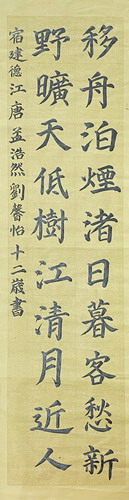 移舟泊煙渚日暮客愁新
野曠天低樹江清月近人
宿建德江唐孟浩然劉馨怡十二歲書